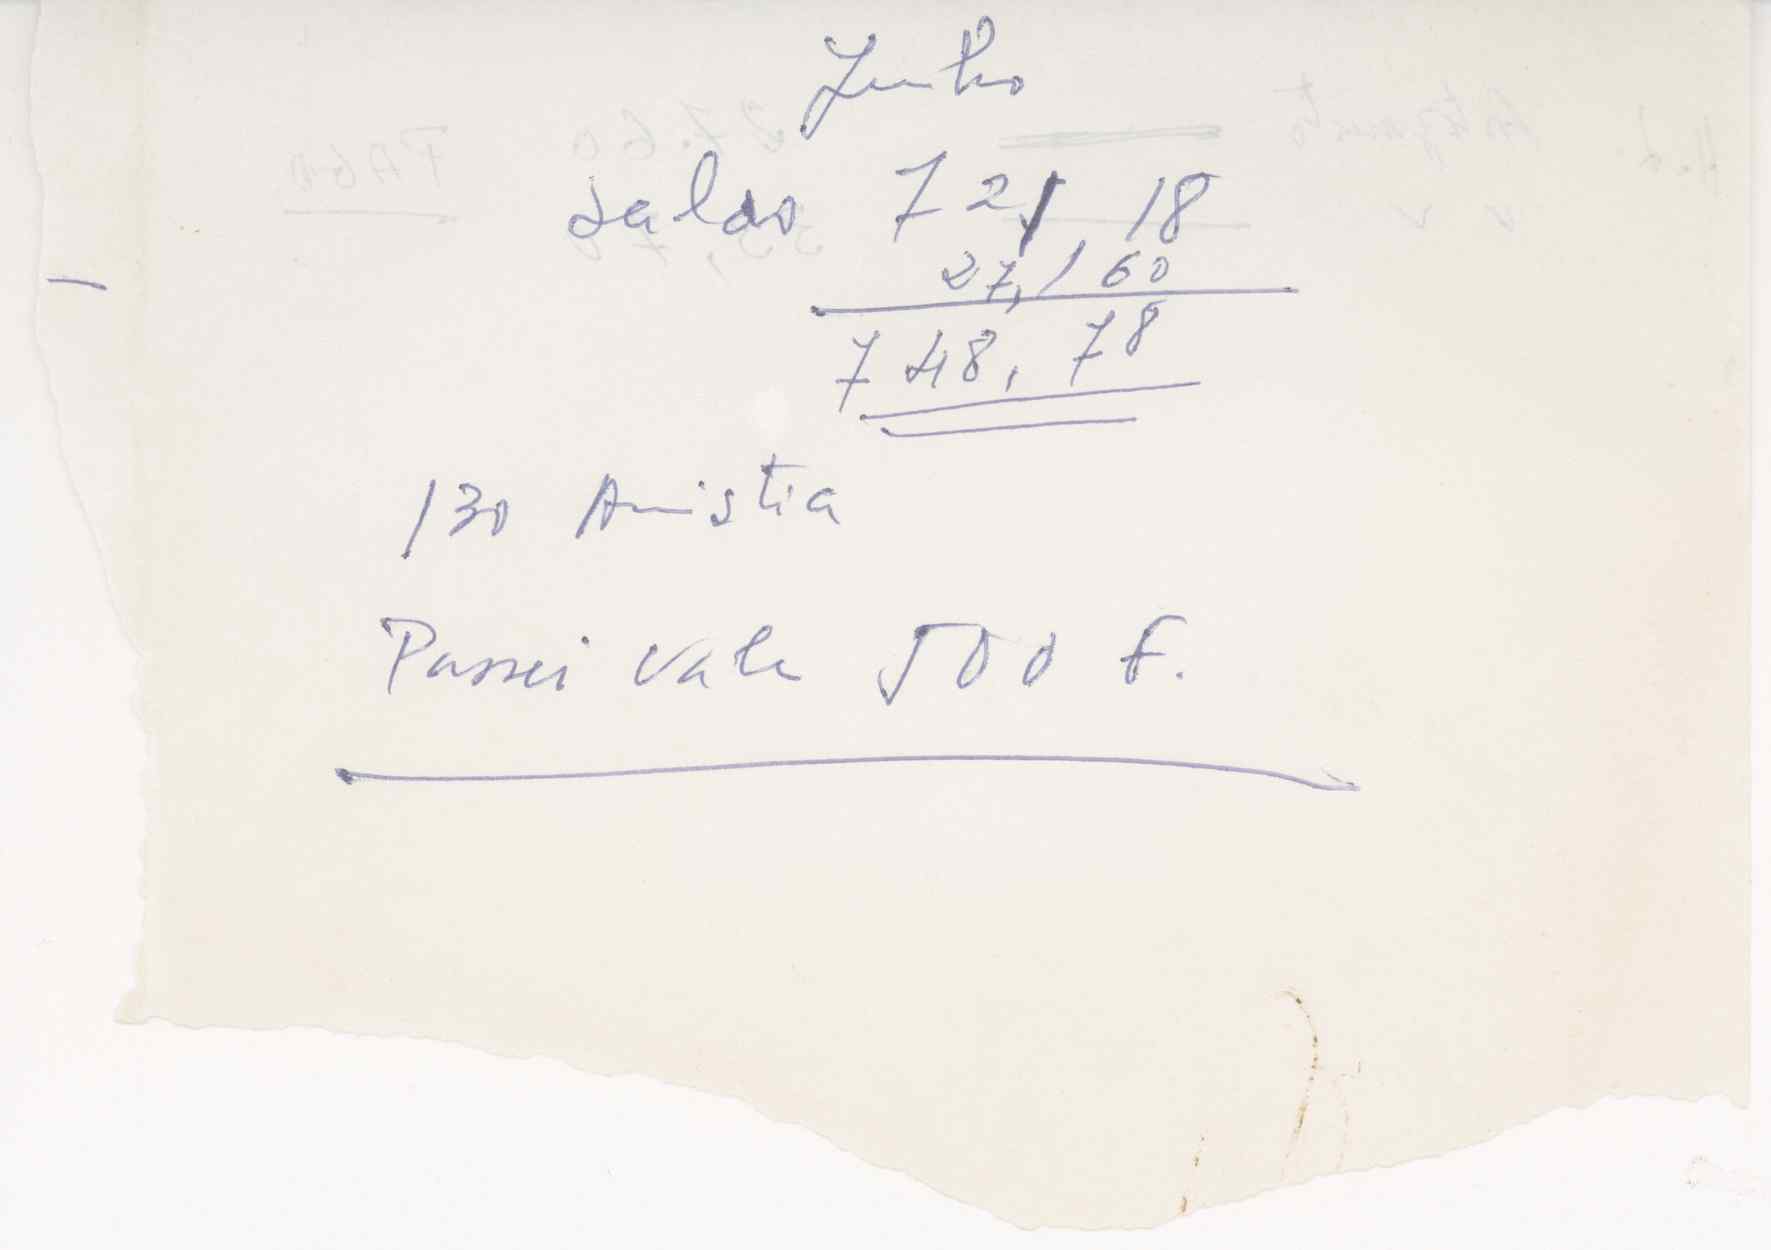 Junho
saldo 721,18
27,60
748,78
130 Anistia
Passei vale 500 F.